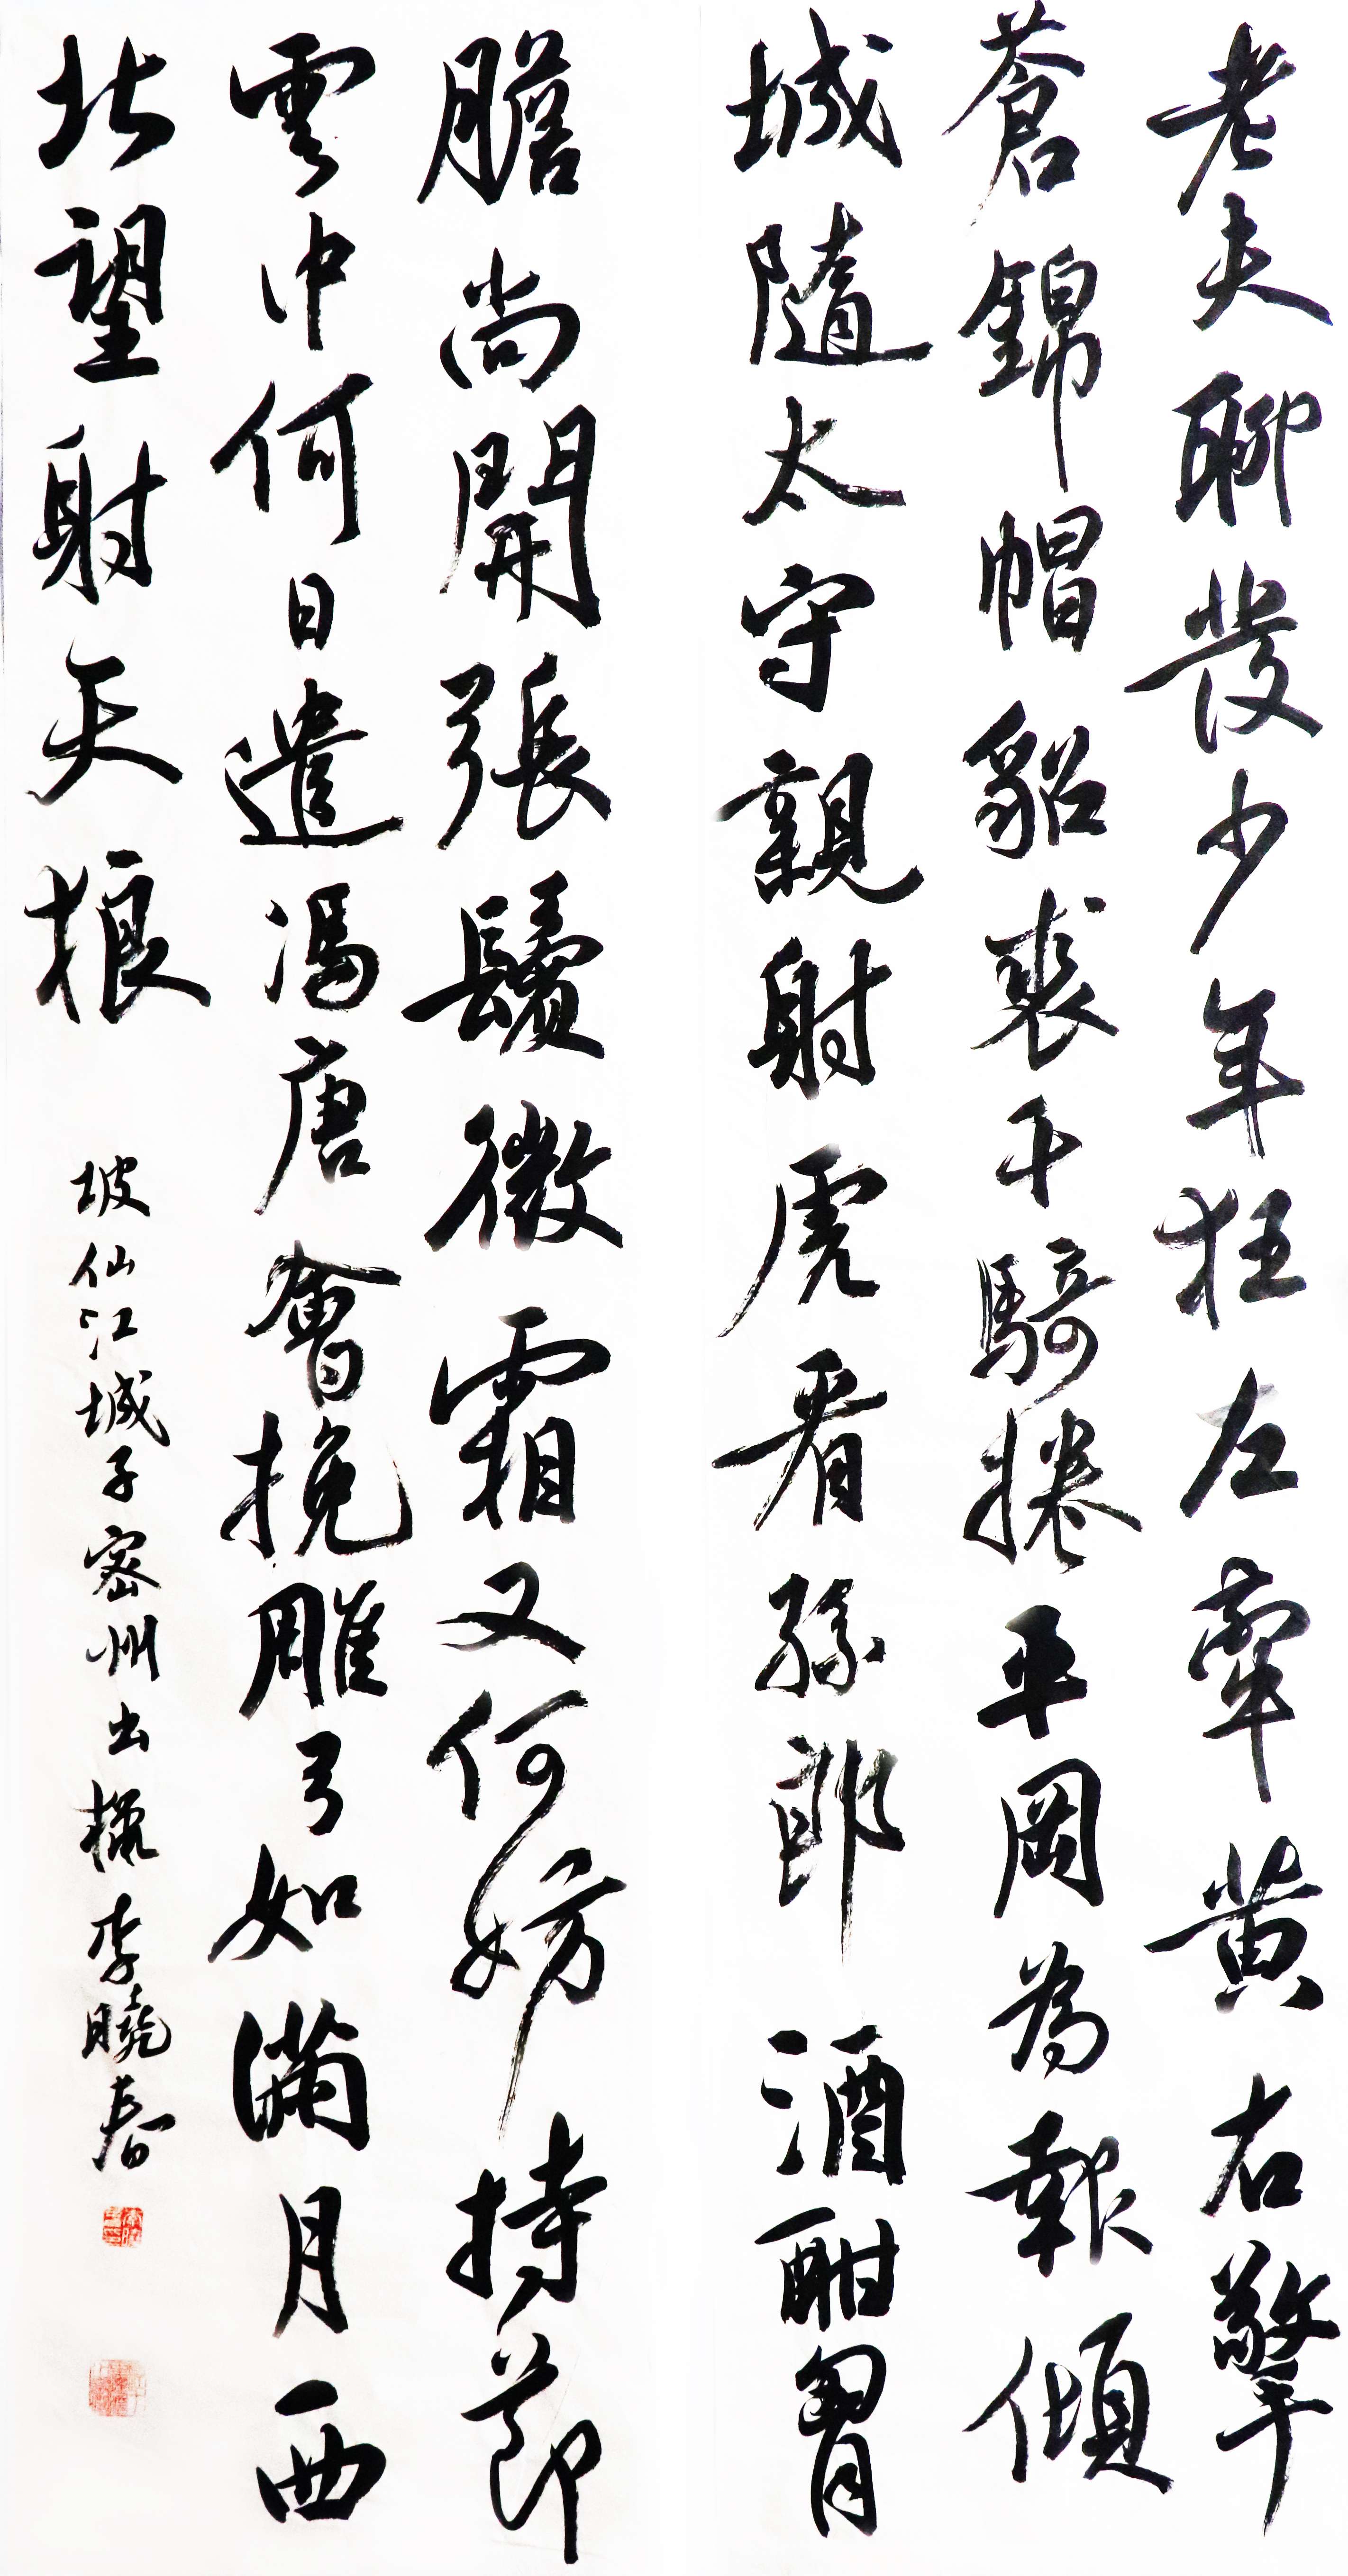 老夫聊發少年狂左牽黄右擎
蒼錦帽貂裘千騎捲平岡為報傾
城隨太守親射虎看孫郎酒酣胃
膽尚開張鬢微霜又何妨持節
雲中何日遣馮唐會挽雕弓如滿月西
北望射天狼
坡仙江城子密州出獵李曉春